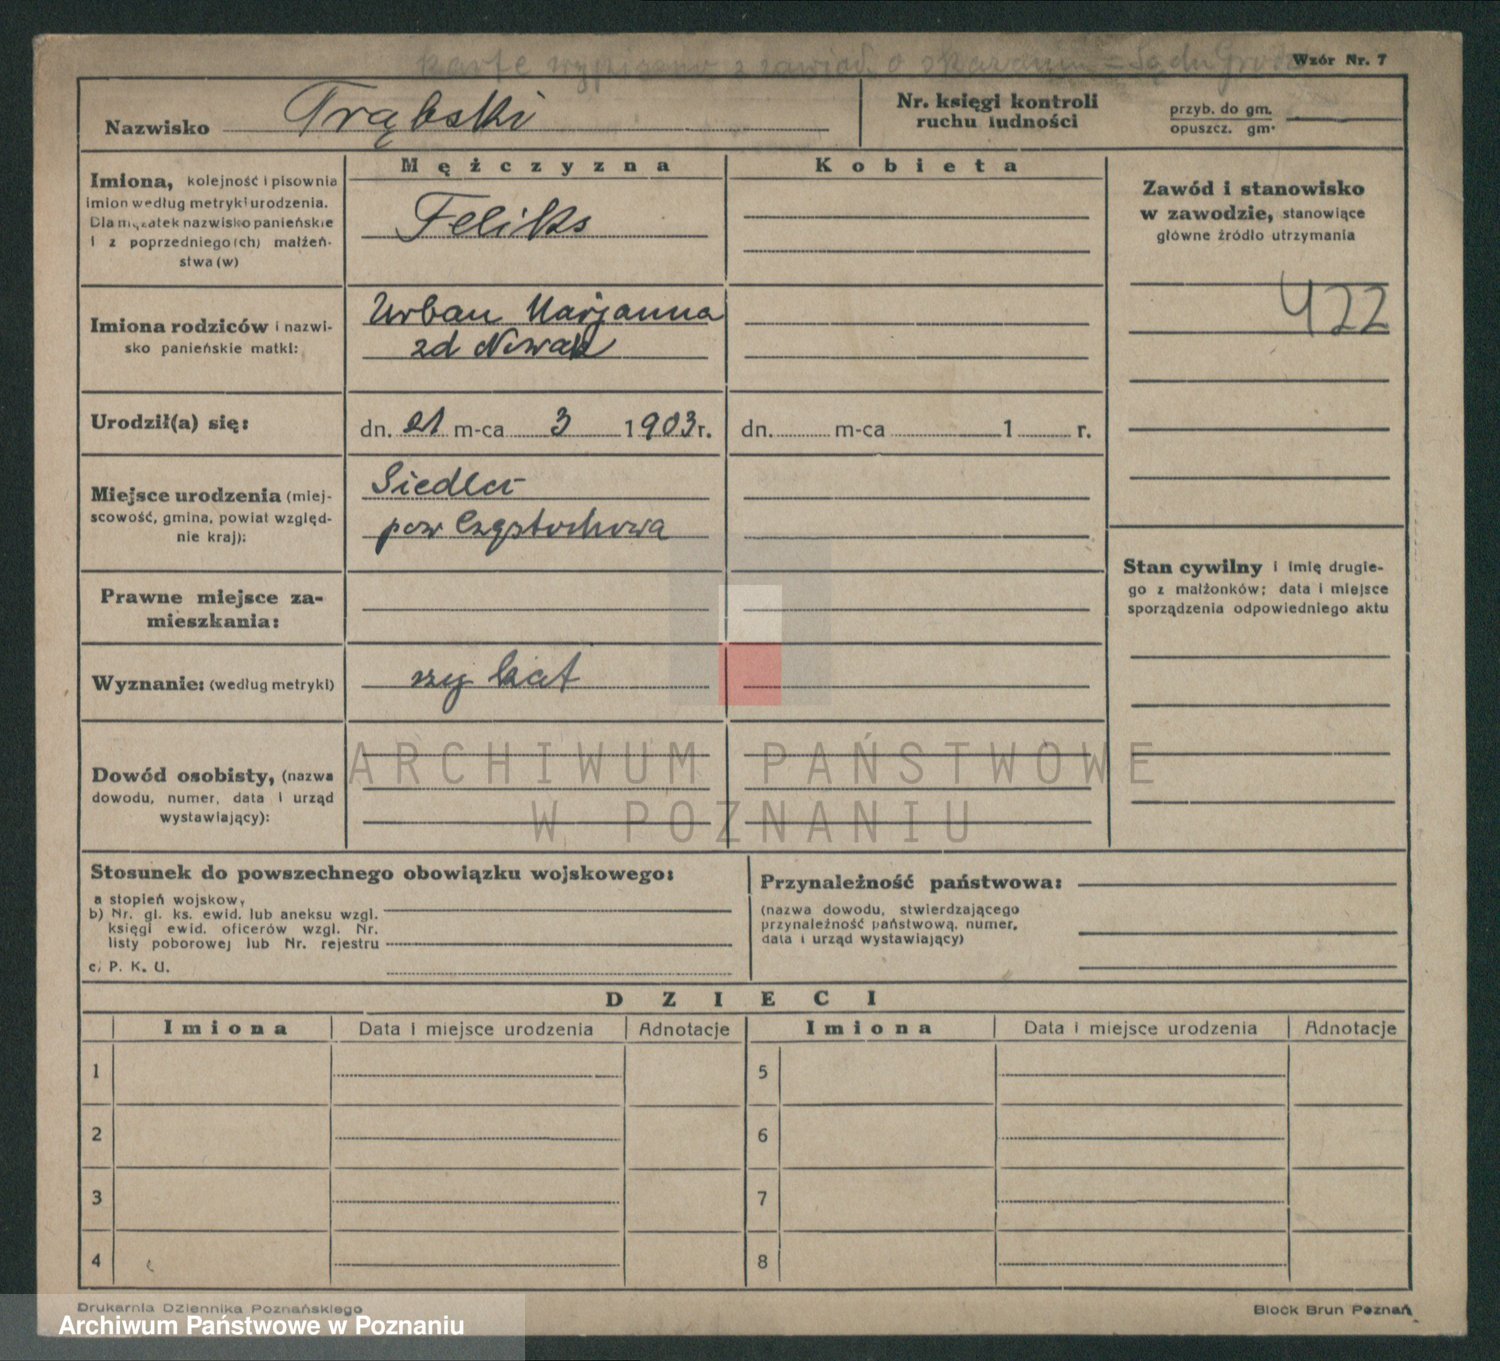 kartę wypisano z zawiad. o skazaniu = Sądu Grodz
Wzór Nr. 7
Nazwisko Trąbski
Nr. księgi kontroli
ruchu ludności
przyb. do gm.
opuszcz. gm.
Mężczyzna
Kobieta
Imiona, kolejność i pisownia
imion według metryki urodzenia.
Dla mężatek nazwisko panieńskie
i z poprzedniego (ch) małżeń-
stwa (w)
Feliks
Zawód i stanowisko
w zawodzie, stanowiące
główne źródło utrzymania
422
Imiona rodziców i nazwi-
sko panieńskie matki:
Urban Marjanna
zd Nowak
Urodził(a) się:
dn. 21 m-ca 3 1903 r.
dn. m-ca 1 r.
Miejsce urodzenia (miej-
scowość, gmina, powiat względ-
nie kraj):
Siedlec
pow Częstochowa
Stan cywilny i imię drugie-
go z małżonków; data i miejsce
sporządzenia odpowiedniego aktu
Prawne miejsce za-
mieszkania:
Wyznanie: (według metryki)
rzy kat
Dowód osobisty, (nazwa
dowodu, numer, data i urząd
wystawiający):
ARCHIWUM PAŃSTWOWE
W POZNANIU
Stosunek do powszechnego obowiązku wojskowego:
a stopień wojskow,
b) Nr. gl. ks. ewid. lub aneksu wzgl.
księgi ewid. oficerów wzgl. Nr.
listy poborowej lub Nr. rejestru
c, P. K. U.
Przynależność państwowa:
(nazwa dowodu, stwierdzającego
przynależność państwową, numer,
data i urząd wystawiający)
DZIECI
Imiona Data i miejsce urodzenia Adnotacje Imiona Data i miejsce urodzenia Adnotacje
1 5
2 6
3 7
4 8
Drukarnia Dziennika Poznańskiego
Block Brun Poznań
Archiwum Państwowe w Poznaniu